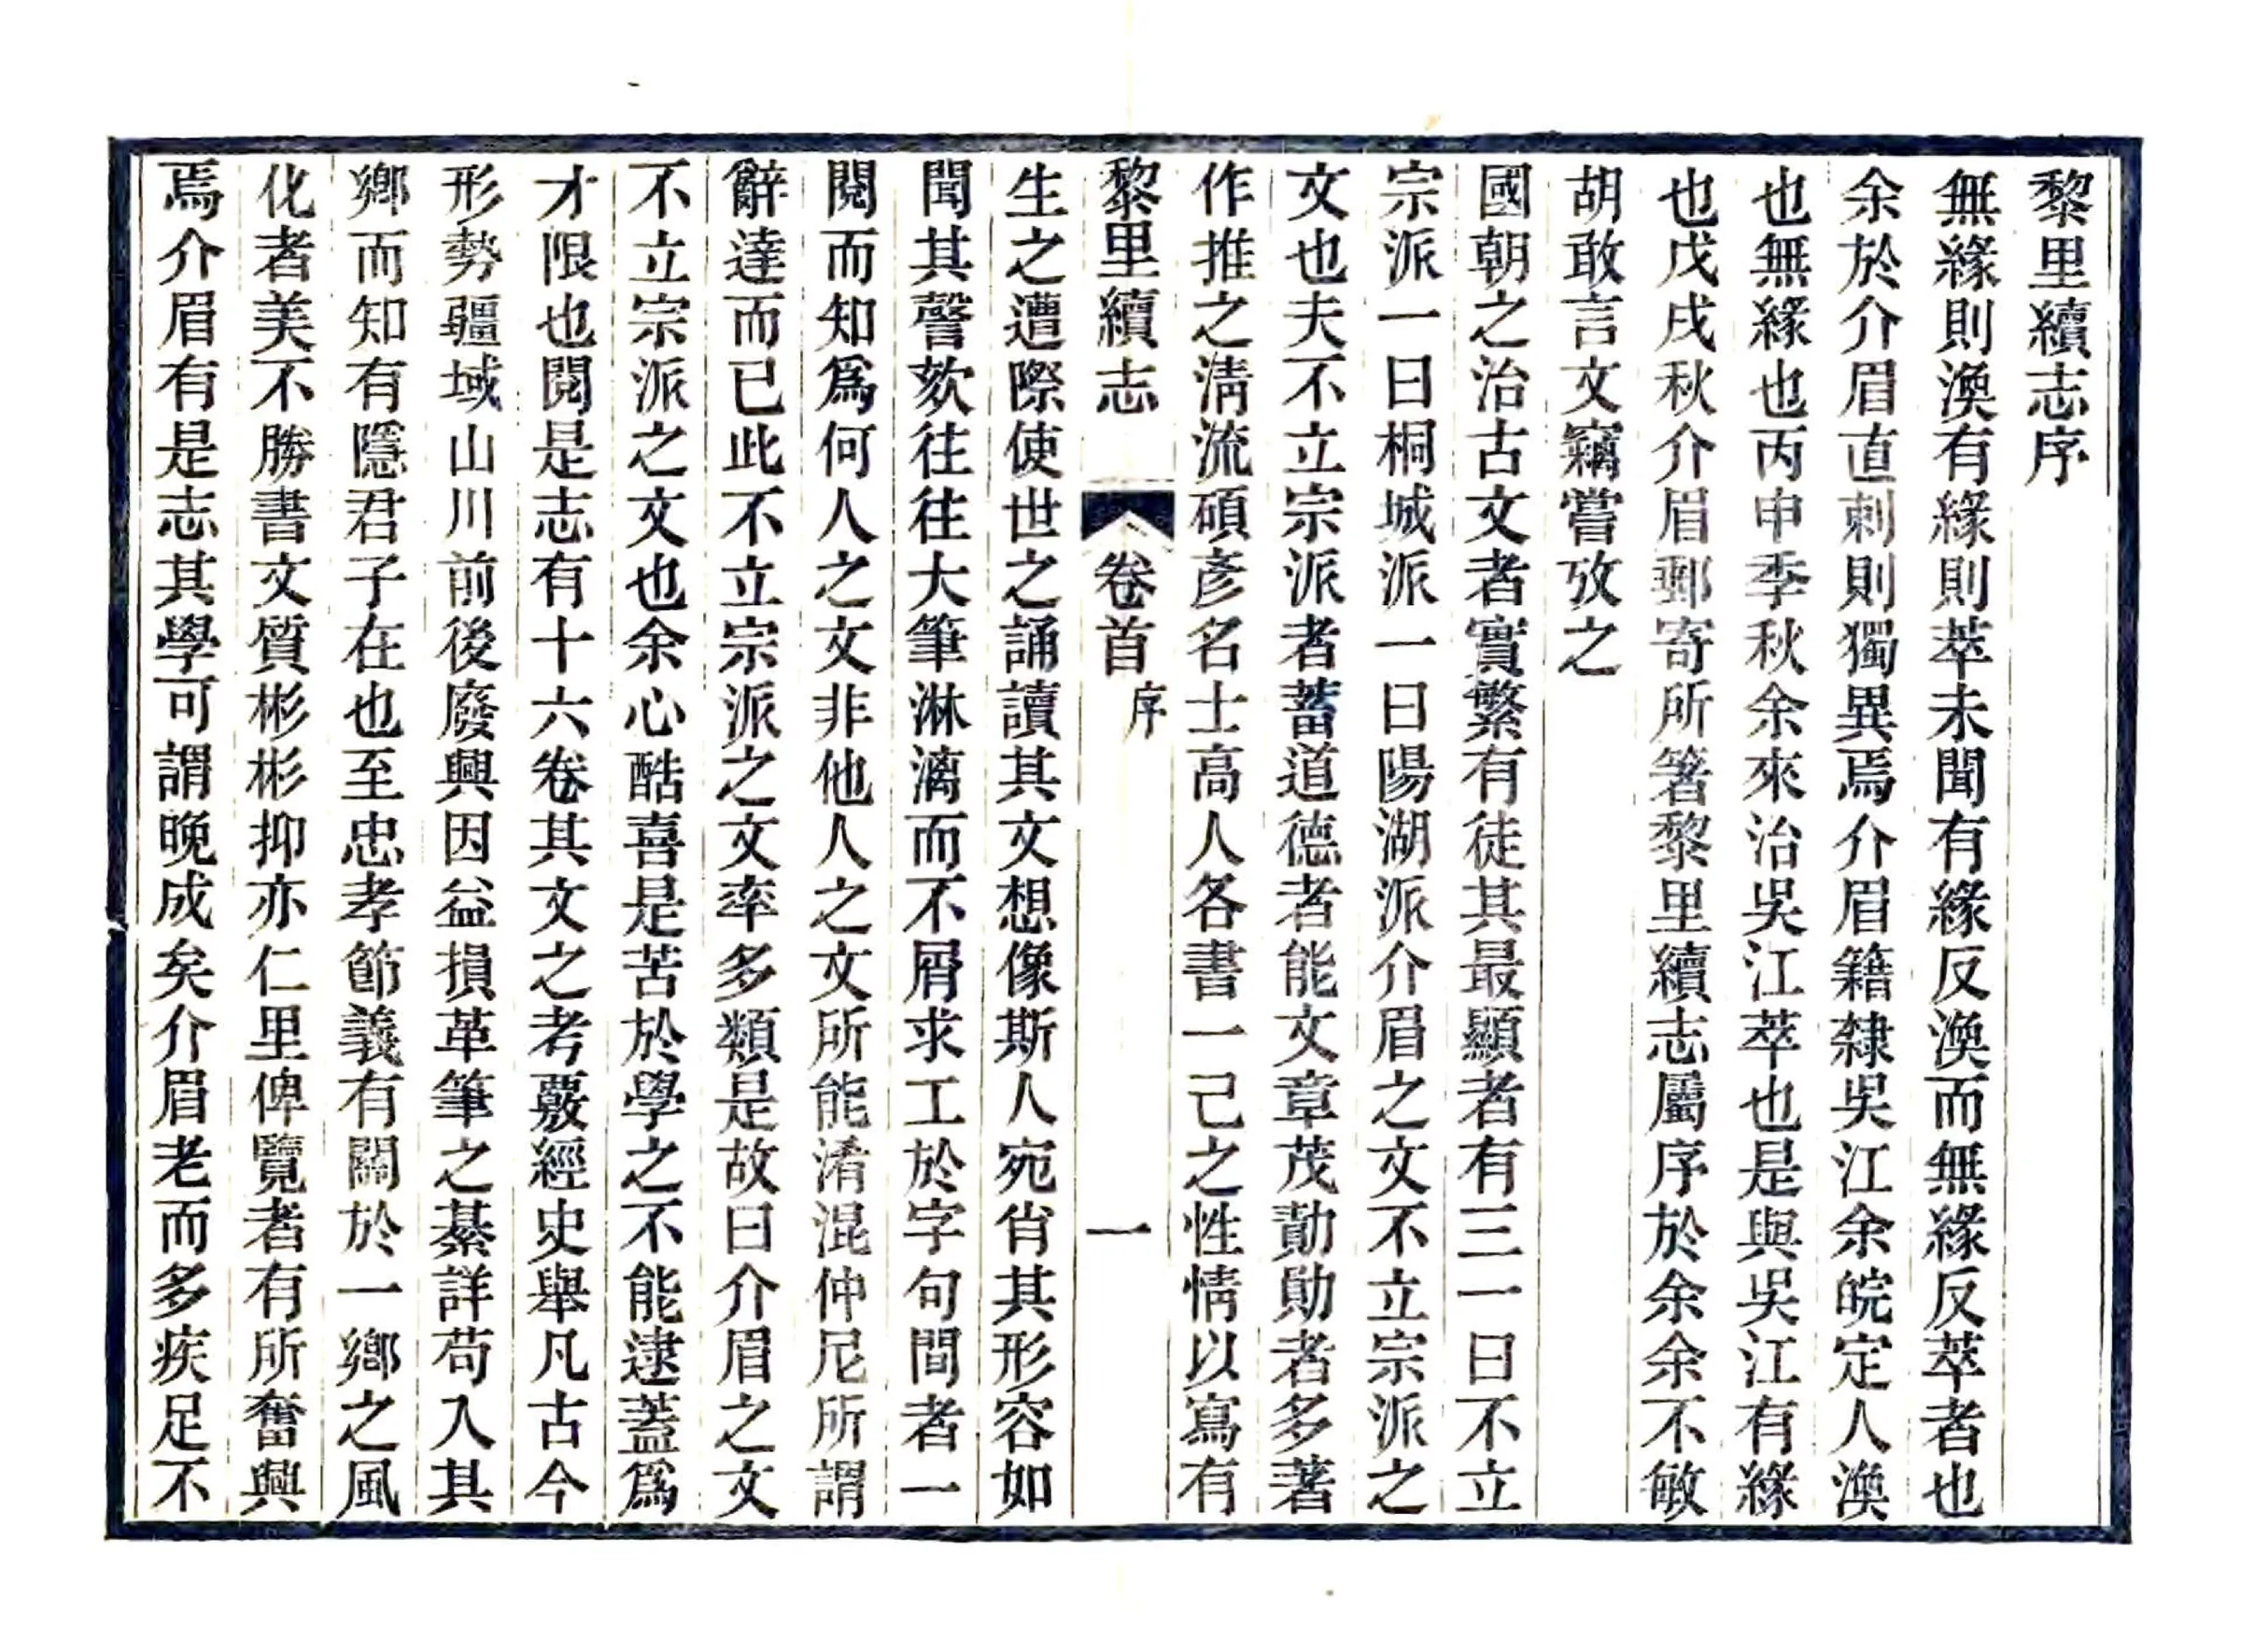 黎里續志序
無緣則渙有緣則萃未聞有緣反渙而無緣反萃者也
余於介眉直刺則獨異焉介眉籍隸吳江余皖定人渙
也無緣也丙申季秋余來治吳江萃也是與吳江有緣
也戊戌秋介眉郵寄所箸黎里續志屬序於余余不敏
胡敢言文竊嘗攷之
國朝之治古文者實繁有徒其最顯者有三一曰不立
宗派一曰桐城派一曰陽湖派介眉之文不立宗派之
文也夫不立宗派者蓄道德者能文章茂勣勛者多著
作推之淸流碩彥名士高人各書一己之性情以寫有
黎里續志
卷首
序
一
生之遭際使世之誦讀其文想像斯人宛肖其形容如
聞其謦欬往往大筆淋漓而不屑求工於字句間者一
閱而知爲何人之文非他人之文所能淆混仲尼所謂
辭達而已此不立宗派之文率多類是故曰介眉之文
不立宗派之文也余心酷喜是苦於學之不能逮蓋爲
才限也閱是志有十六卷其文之考覈經史舉凡古今
形勢疆域山川前後廢興因益損革筆之綦詳苟入其
鄉而知有隱君子在也至忠孝節義有關於一鄉之風
化者美不勝書文質彬彬抑亦仁里俾覽者有所奮興
焉介眉有是志其學可謂晚成矣介眉老而多疾足不